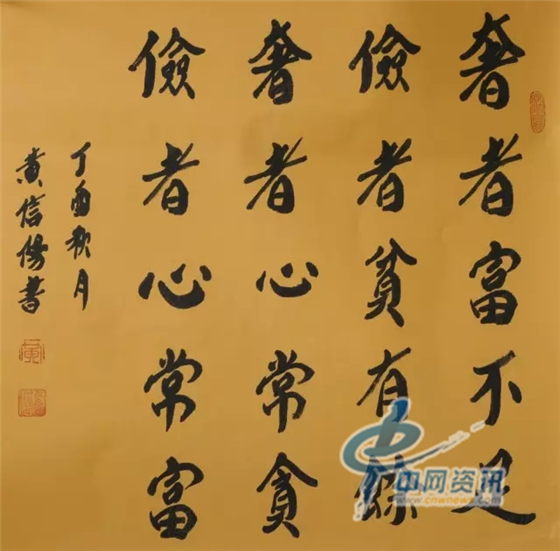 奢者富不足
儉者貧有餘
奢者心常貧
儉者心常富
丁酉秋月
黄信陽書
中网资讯
www.cnwnews.com